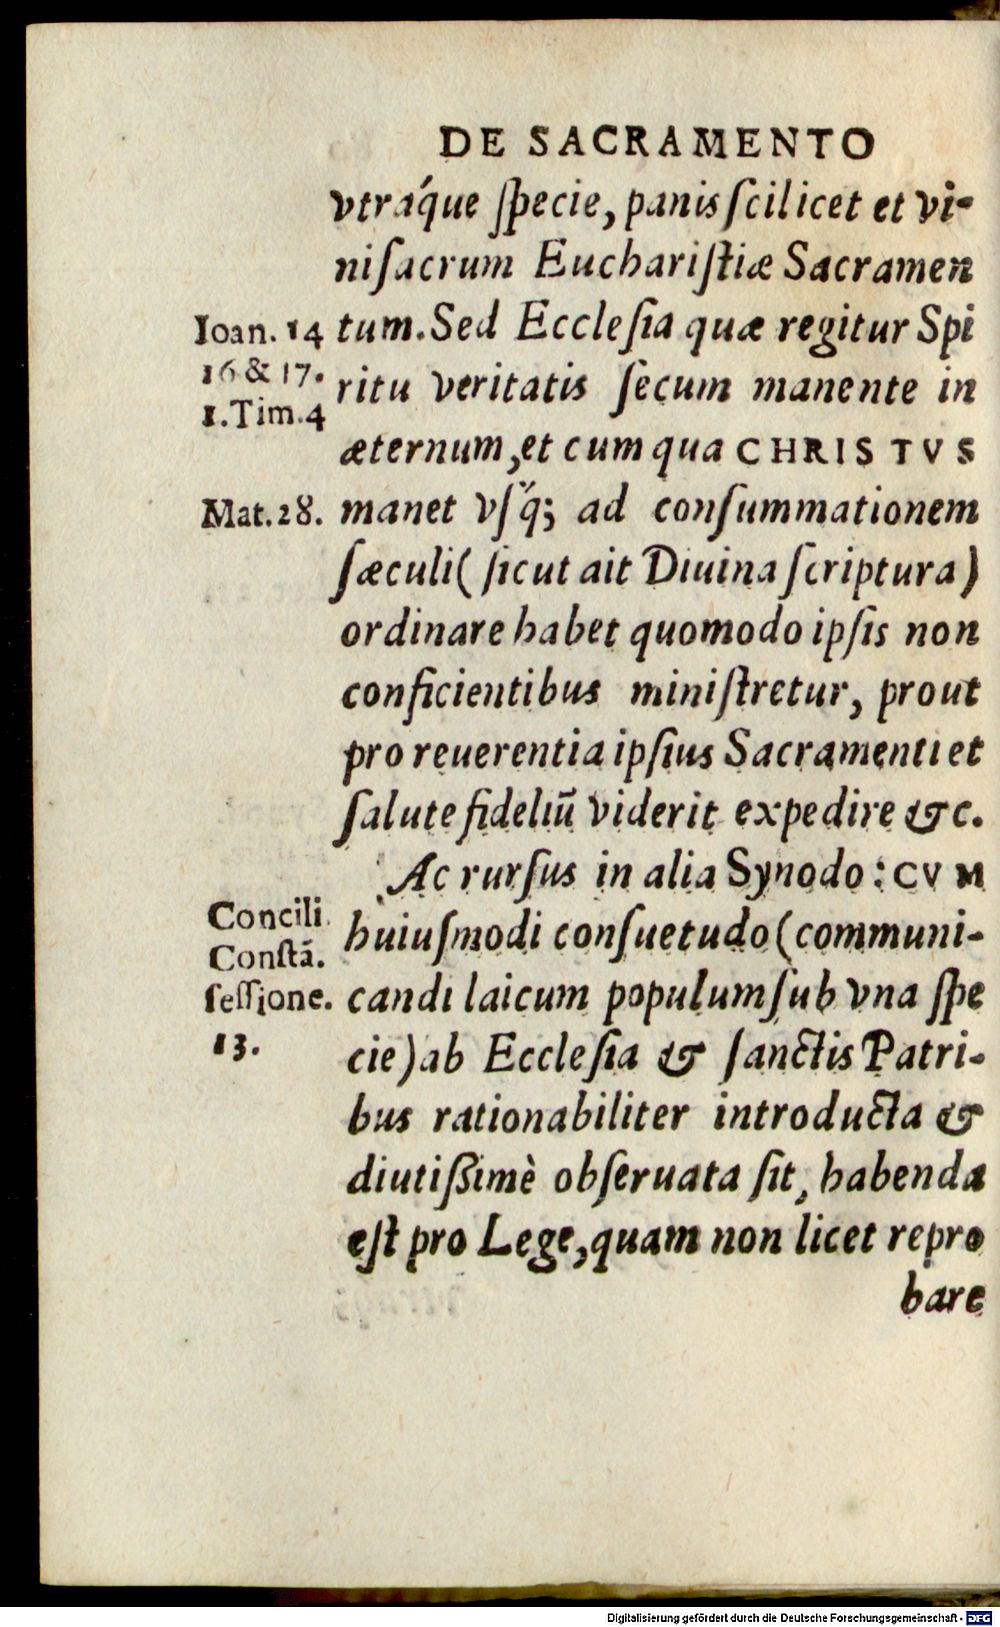 DE SACRAMENTO
vtráque ſpecie, panis ſcilicet et vi-
ni ſacrum Euchariſtiæ Sacramen
Ioan. 14
16 & 17.
1. Tim. 4
tum. Sed Eccleſia quæ regitur Spi
ritu veritatis ſecum manente in
æternum, et cum qua CHRISTVS
Mat. 28.
manet vſq́; ad conſummationem
ſæculi (ſicut ait Diuina ſcriptura)
ordinare habet quomodo ipſis non
conficientibus miniſtretur, prout
pro reuerentia ipſius Sacramenti et
ſalute fideliū viderit expedire &c.
Ac rurſus in alia Synodo: CVM
Concili.
Conſtā.
ſeſſione.
13.
huiuſmodi conſuetudo (communi-
candi laicum populum ſub vna ſpe
cie) ab Eccleſia & ſanctis Patri-
bus rationabiliter introducta &
diutißimè obſeruata ſit, habenda
eſt pro Lege, quam non licet repro
bare
Digitalisierung gefördert durch die Deutsche Forschungsgemeinschaft - DFG